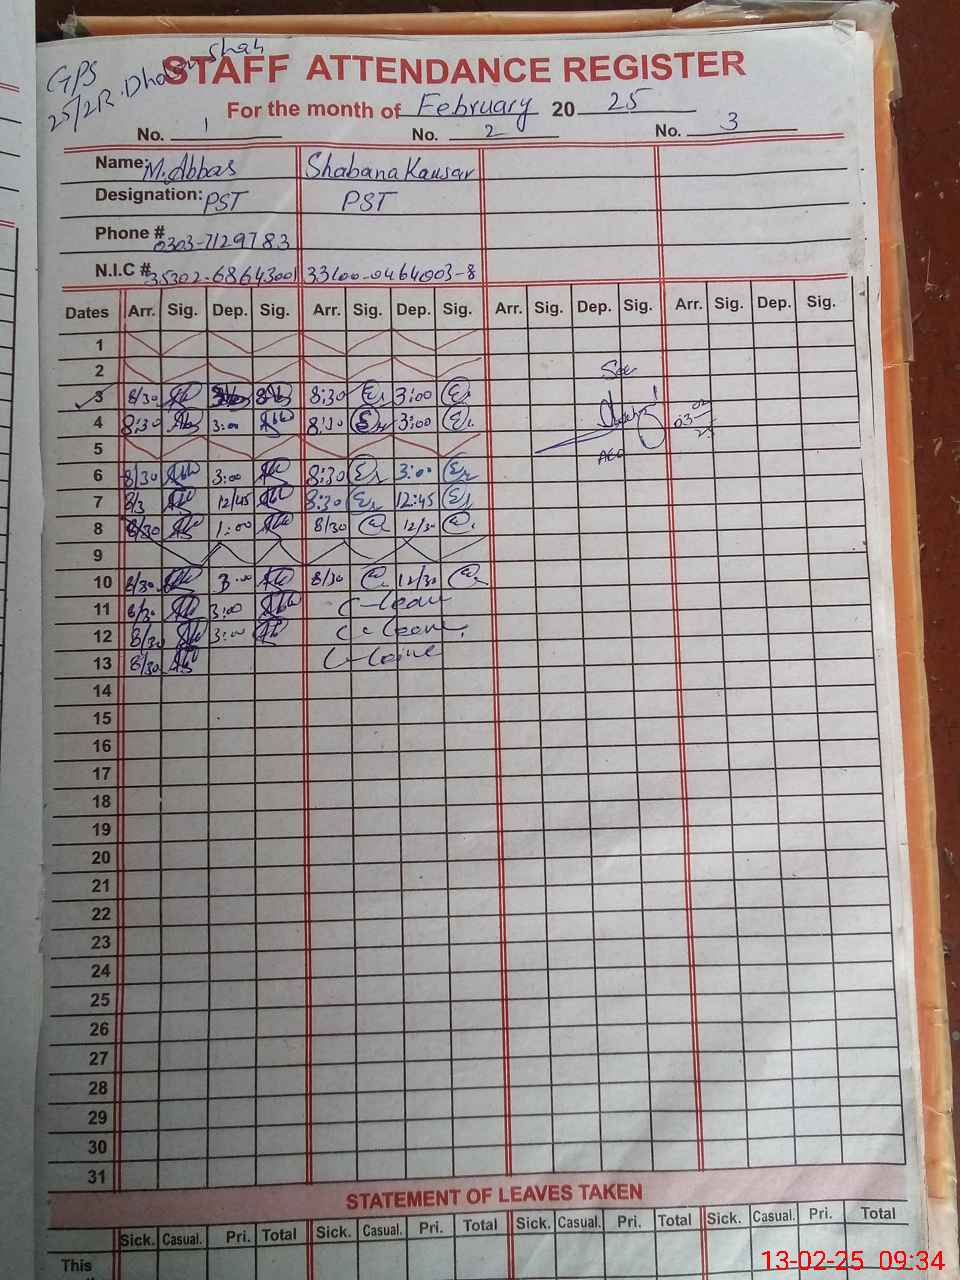 GPS
25/2R. Dhoian Shah
STAFF ATTENDANCE REGISTER
For the month of February 20 25
No. 1 No. 2 No. 3
Name: M. Abbas Shabana Kausar
Designation: PST PST
Phone # 0303-7129783
N.I.C # 35302-6864300 33100-0464003-8
Dates Arr. Sig. Dep. Sig. Arr. Sig. Dep. Sig. Arr. Sig. Dep. Sig. Arr. Sig. Dep. Sig.
1
2
3 8/30 8:30 3:00
4 8:30 3:00 8:30 3:00
03-02-25
5
AEO
6 8/30 3:00 8:30 3:00
7 8/3 12/45 8:30 12:45
8 8/30 1:00 8/30 12/30
9
10 8/30 3:00 8/30 12/30
11 8/30 3:00 C-leave
12 8/30 3:00 C-leave
13 8/30 C-leave
14
15
16
17
18
19
20
21
22
23
24
25
26
27
28
29
30
31
STATEMENT OF LEAVES TAKEN
Sick. Casual. Pri. Total Sick. Casual. Pri. Total Sick. Casual. Pri. Total Sick. Casual. Pri. Total
This
13-02-25 09:34